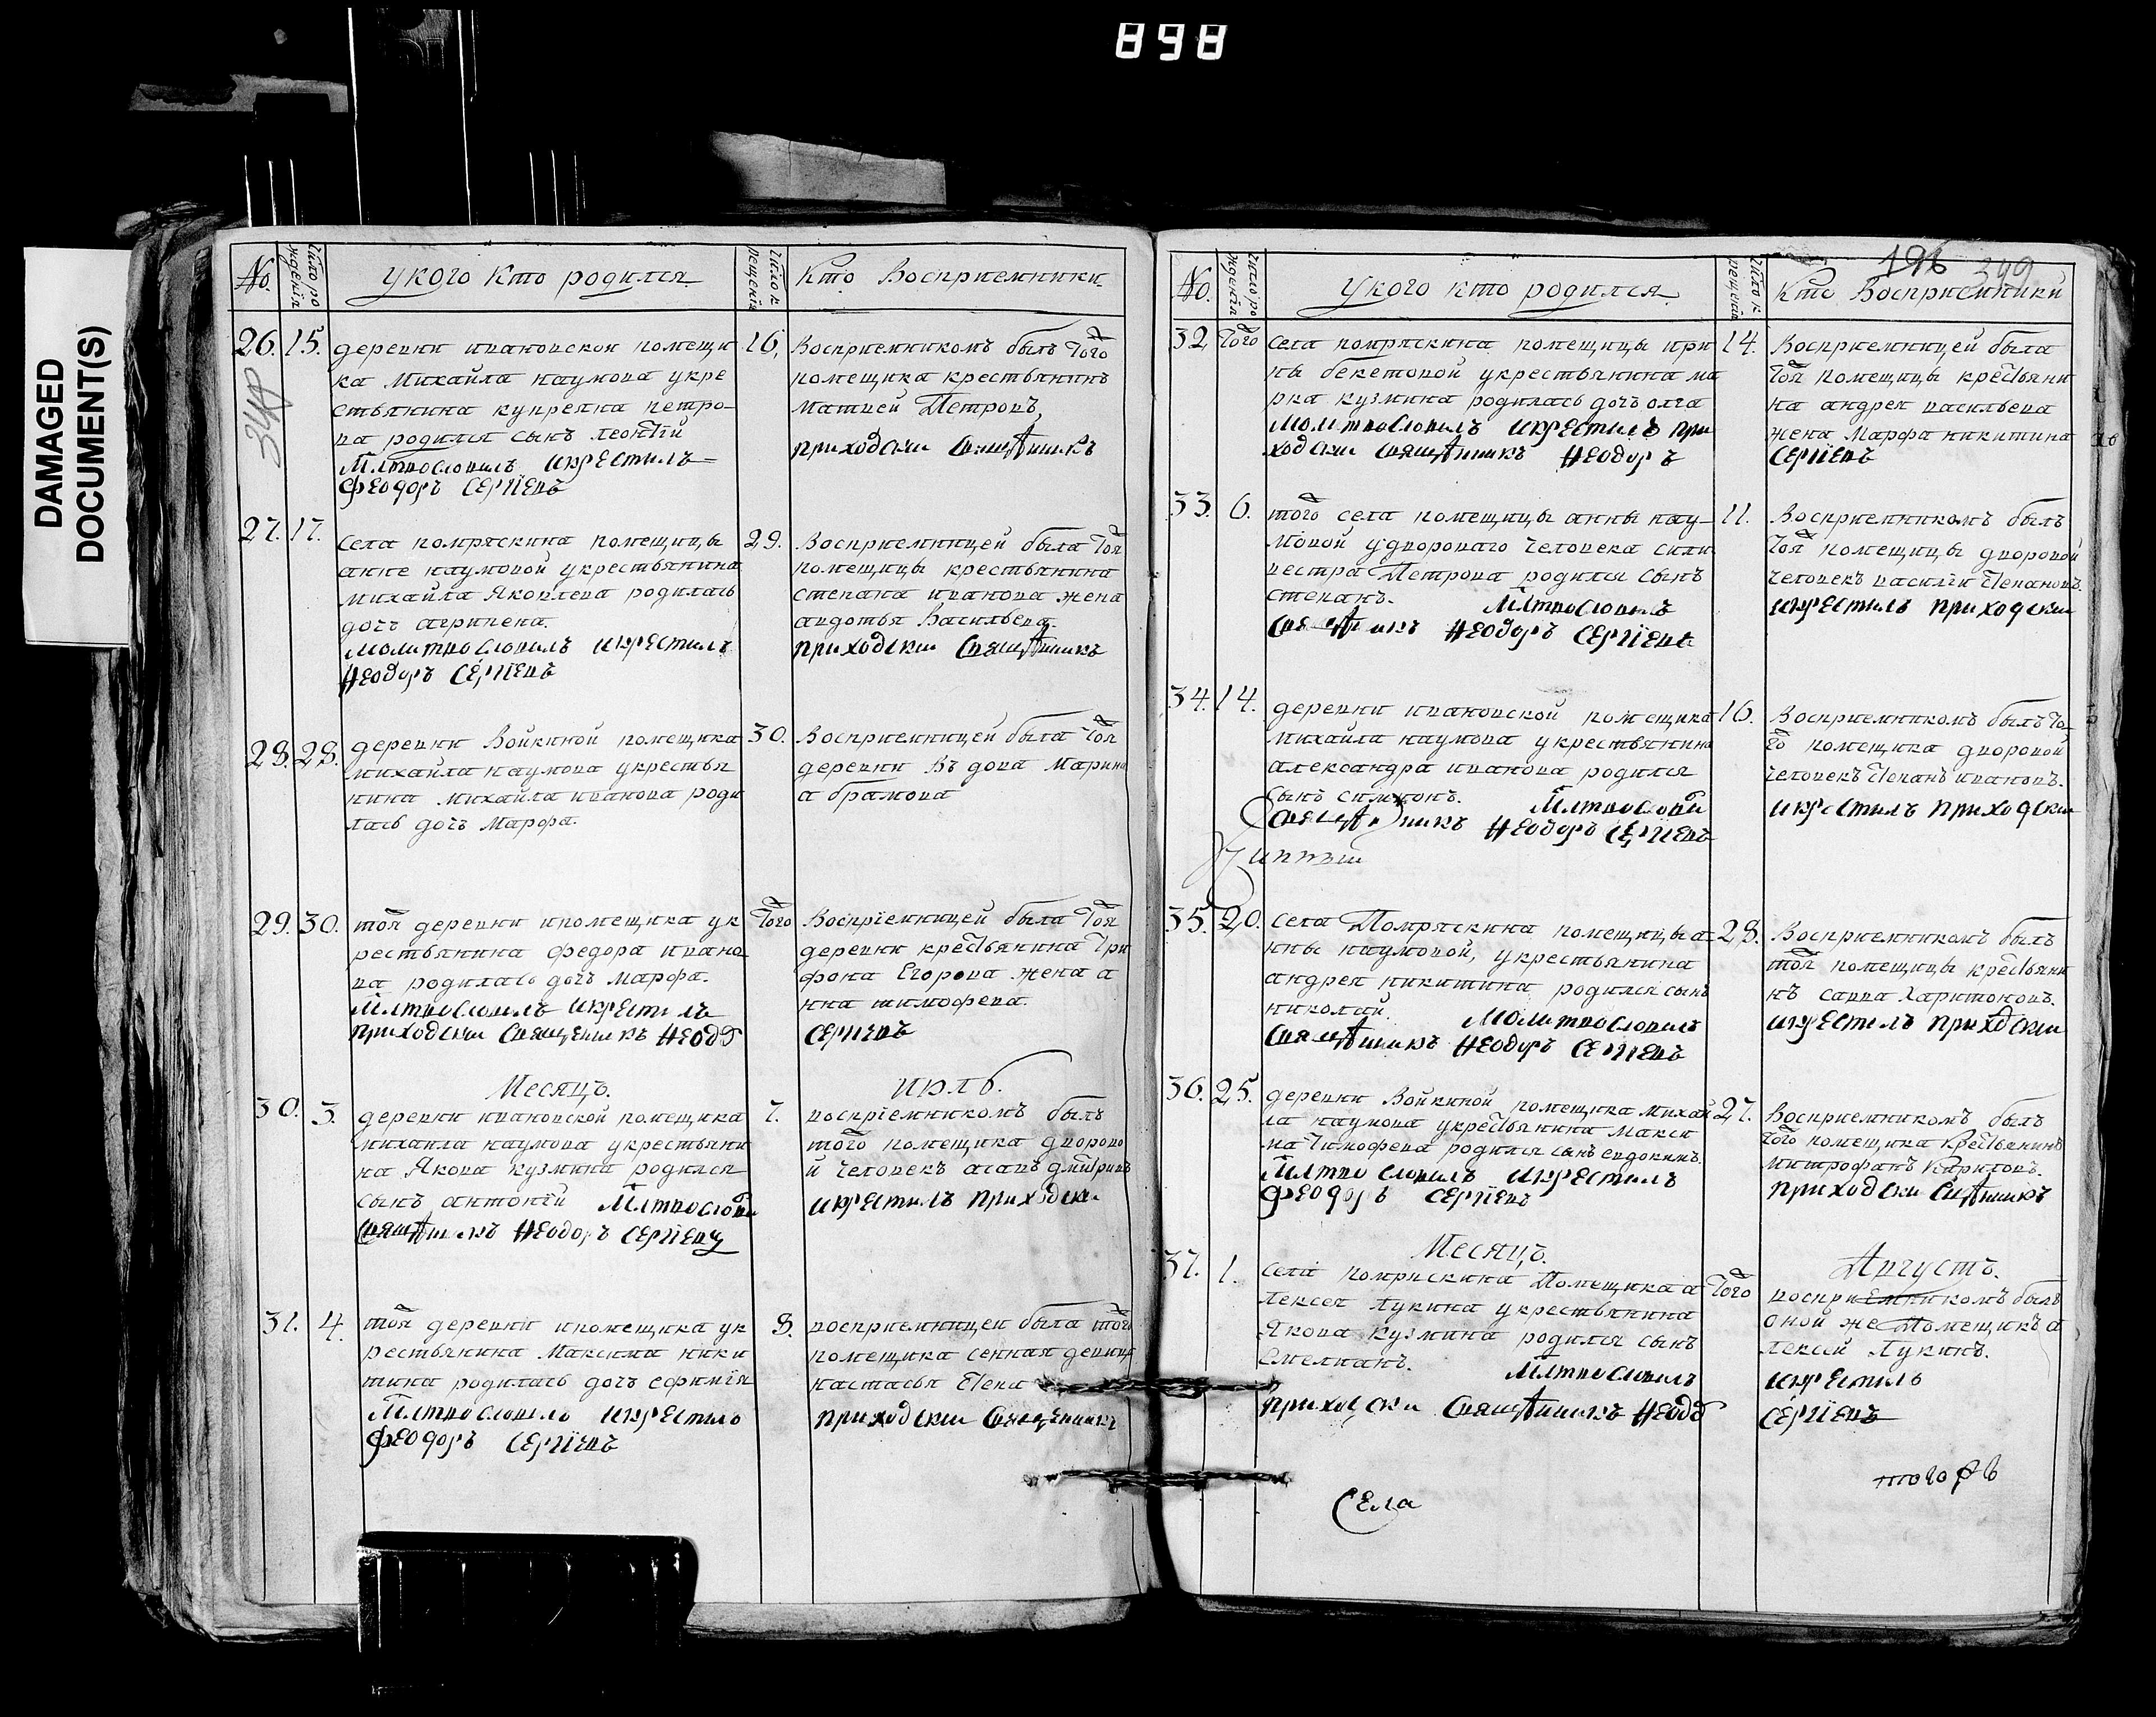 898
DAMAGED
DOCUMENT(S)
No.
Число рождения
укого кто родился
Число крещения
Кто Восприемники
26. 15. деревни ивановской помещи
ка Михайла наумова укре
стьянина куприяна петро-
ва родился сынъ леонтий
Млтвословилъ икрестилъ
феодоръ Сергiевъ
16. Восприемникомъ былъ того
помещика крестьянинъ
матвей Петровъ
приходски Священникъ
27. 17. села помряскина помещицы
анне наумовой укрестьянина
михайла Яковлева родилась
дочь агрипена.
молитвословилъ икрестилъ
Ѳеодоръ Сергiевъ
29. Восприемницей была тоя
помещицы крестьянина
степана иванова жена
авдотья Васильева.
приходски Священникъ
28. 28. деревни Войкиной помещика
михайла наумова укрестья
нина михайла иванова роди
лась дочь Марфа.
30. Восприемницей была тоя
деревни вдова Марина
абрамова
29. 30. тоя деревни ипомещика ук
рестьянина федора ивано
ва родилась дочь марфа.
млтвословилъ икрестилъ
приходски Священникъ Ѳеодо
того Восприемницей была тоя
деревни крестьянина три
фона Егорова жена а
нна тимофева.
Сергiевъ
Месяцъ. июль.
30. 3. деревни ивановской помещика
михаила наумова укрестьяни
на Якова кузмина родился
сынъ антонiй Млтвослови
Священникъ Ѳеодоръ Сергiевъ
7. восприемникомъ былъ
того помещика дворово
й человекъ агапъ дмитриевъ
икрестилъ приходски
31. 4. тоя деревни ипомещика ук
рестьянина Максима ники
тина родилась дочь ефимiя
Млтвословилъ икрестилъ
феодоръ Сергiевъ
8. восприемницеи была того
помещика сенная девица
настасья
приходски Священникъ
196 349
No.
Число рождения
укого кто родился
Число крещения
Кто Восприемники
32. того села помряскина помещицы ири
ны бекетовой укрестьянина ма
рка кузмина родилась дочь олга
молитвословилъ икрестилъ при
ходски Священникъ Ѳеодоръ
14. Восприемницей была
тоя помещицы крестьяни
на андрея васильева
жена Марфа никитина
Сергiевъ
33. 6. того села помещицы анны нау-
мовой удвороваго человека сили
вестра Петрова родился сынъ
степанъ. Млтвословилъ
Священникъ Ѳеодоръ Сергiевъ
11. Восприемникомъ былъ
тоя помещицы дворовой
человекъ василiи
икрестилъ приходски
34. 14. деревни ивановской помещика
михайла наумова укрестьянина
александра иванова родился
сынъ симионъ. Млтвослови
Священникъ Ѳеодоръ Сергiевъ
16. Восприемникомъ былъ то
го помещика дворовой
человекъ степанъ ивановъ.
икрестилъ приходски
35. 20. села Помряскина помещицы а-
нны наумовой, укрестьянина
андрея никитина родился сынъ
николай. Молитвословилъ
Священникъ Ѳеодоръ Сергiевъ
28. Восприемникомъ былъ
тоя помещицы крестьяни
нъ савва Харитоновъ.
икрестилъ приходски
36. 25. деревни Войкиной помещика михай
ла наумова укрестьянина макси
ма тимофева родился сынъ евдокимъ.
Млтвословилъ икрестилъ
феодоръ Сергiевъ
27. Восприемникомъ былъ
того помещика крестьянинъ
митрофанъ Кириловъ.
приходски Священникъ
Месяцъ. Августъ.
37. 1. села помряскина Помещика а
лексея Лукина укрестьянина
Якова кузмина родился сынъ
Емелианъ. Млтвословилъ
приходски Священникъ Ѳеодо
того восприемникомъ былъ
оной же Помещикъ а
лексей Лукинъ.
икрестилъ
Сергiевъ
Села